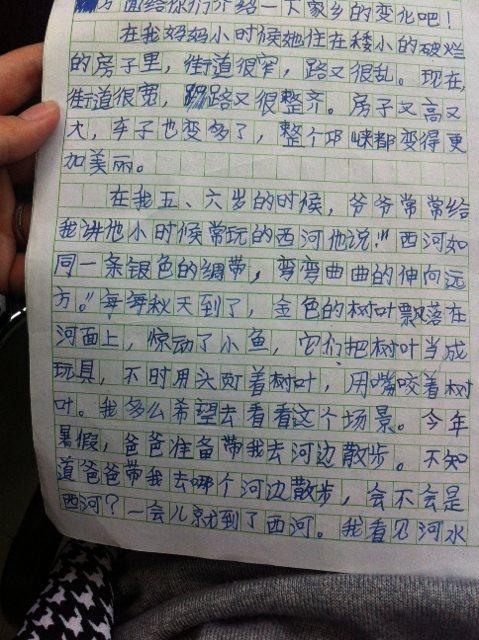 方面给你们介绍一下家乡的变化吧！
在我妈妈小时候她住在矮小的破烂
的房子里，街道很窄，路又很乱。现在，
街道很宽，路又很整齐。房子又高又
大，车子也变多了，整个邛崃都变得更
加美丽。
在我五、六岁的时候，爷爷常常给
我讲他小时候常玩的西河他说："西河如
同一条银色的绸带，弯弯曲曲的伸向远
方。"每每秋天到了，金色的树叶飘落在
河面上，惊动了小鱼，它们把树叶当成
玩具，不时用头盯着树叶，用嘴咬着树
叶。我多么希望去看看这个场景。今年
暑假，爸爸准备带我去河边散步。不知
道爸爸带我去哪个河边散步，会不会是
西河？一会儿就到了西河。我看见河水